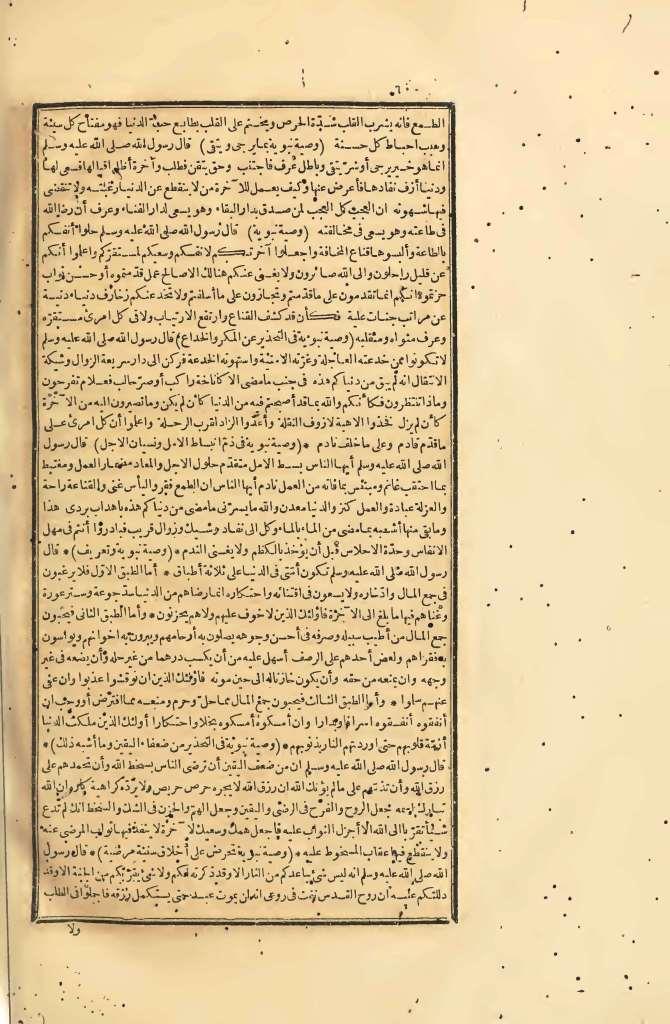 ٦٠
الطمع فانه يشرب القلب شدّة الحرص ويختم على القلب بطابع حب الدنيا فهو مفتاح كل سيئة
وسبب احباط كل حسنة (وصية نبوية بما يرجى ويتقى) قال رسول الله صلى الله عليه وسلم
انما هو خير يرجى أو شرّ يتقى وباطل عُرف فاجتنب وحق تيقن فطلب وآخرة أظل اقبالها فسعى لها
ودنيا أزف نفادها فأعرض عنها وكيف يعمل للآخرة من لا ينقطع عن الدنيا رغبته ولا تنقضى
فيها شهوته ان العجب كل العجب لمن صدق بدار البقاء وهو يسعى لدار الفناء وعرف أن رضا الله
فى طاعته وهو يسعى فى مخالفته (وصية نبوية) قال رسول الله صلى الله عليه وسلم حلوا أنفسكم
بالطاعة وألبسوها قناع المخافة واجعلوا آخرتكم لانفسكم وسعيكم لمستقركم واعلموا أنكم
عن قليل راحلون والى الله صائرون ولا يغنى عنكم هنالك الا صالح عمل قدمتموه أو حسن ثواب
حزتموه انكم انما تقدمون على ما قدمتم وتجازون على ما أسلفتم ولا تخدعنكم زخارف دنيا دنية
عن مراتب جنات علية فكأن قد كشف القناع وارتفع الارتياب ولاقى كل امرئ مستقره
وعرف مثواه ومنقلبه (وصية نبوية فى التحذير عن المكر والخداع) قال رسول الله صلى الله عليه وسلم
لا تكونوا ممن خدعته العاجلة وغرّته الامنية واستهوته الخدعة فركن الى دار سريعة الزوال وشيكة
الانتقال انه لم يبق من دنياكم هذه فى جنب ما مضى الا كاناخة راكب أو صرّ حالب فعلام تفرحون
وماذا تنتظرون فكأنكم والله بما قد أصبحتم فيه من الدنيا كأن لم يكن وما تصيرون اليه من الآخرة
كأن لم يزل فخذوا الاهبة لازوف النقلة وأعدّوا الزاد لقرب الرحلة واعلموا أن كل امرئ على
ما قدم قادم وعلى ما خلف نادم * (وصية نبوية فى ذمّ انبساط الامل ونسيان الاجل) قال رسول
الله صلى الله عليه وسلم أيها الناس بسط الامل متقدم حلول الاجل والمعاد مضمار العمل ومغتبط
بما احتقب غانم ومبتئس بما فاته من العمل نادم أيها الناس ان الطمع فقر واليأس غنى والقناعة راحة
والعزلة عبادة والعمل كنز والدنيا معدن والله ما يسرنى ما مضى من دنياكم هذه باهداب بردى هذا
وما بقى منها أشبه بما مضى من الماء بالماء وكل الى نفاد وشيك وزوال قريب فبادروا أنتم فى مهل
الانفاس وحدّة الاحلاس قبل أن يؤخذ بالكظم ولا يغنى الندم * (وصية نبوية وتعريف) * قال
رسول الله صلى الله عليه وسلم تكون أمتى فى الدنيا على ثلاثة أطباق * أما الطبق الاوّل فلا يرغبون
فى جمع المال وادّخاره ولا يسعون فى اقتنائه واحتكاره انما رضاهم من الدنيا سدّ جوعة وستر عورة
وغناهم فيها ما بلغ الى الآخرة فأولئك الذين لا خوف عليهم ولا هم يحزنون * وأما الطبق الثانى فيحبون
جمع المال من أطيب سبيله وصرفه فى أحسن وجوهه يصلون به أرحامهم ويبرون به اخوانهم ويواسون
به فقراءهم ولعض أحدهم على الرصف أسهل عليه من أن يكسب درهما من غير حله وأن يضعه فى غير
وجهه وان يمنعه من حقه وأن يكون خازنا له الى حين موته فأولئك الذين ان نوقشوا عذبوا وان عفى
عنهم سلموا * وأما الطبق الثالث فيحبون جمع المال مما حل وحرم ومنعه مما افترض أو وجب ان
أنفقوه أنفقوه اسرافا وبدارا وان أمسكوه أمسكوه بخلا واحتكارا أولئك الذين ملكت الدنيا
أزمّة قلوبهم حتى اوردتهم النار بذنوبهم * (وصية نبوية فى التحذير من ضعف اليقين وما أشبه ذلك) *
قال رسول الله صلى الله عليه وسلم ان من ضعف اليقين أن ترضى الناس بسخط الله وأن تحمدهم على
رزق الله وأن تذمّهم على ما لم يؤتك الله ان رزق الله لا يجره حرص حريص ولا يردّه كراهية كاره ان الله
تبارك اسمه يجعل الروح والفرح فى الرضى واليقين وجعل الهم والحزن فى الشك والسخط انك لم تدع
شيأ تقرّبا الى الله الا أجزل الثواب عليه فاجعل همك وسعيك لآخرة لا ينفد فيها ثواب المرضى عنه
ولا ينقطع فيها عقاب المسخوط عليه * (وصية نبوية تحرض على أخلاق سنية مرضية) * قال رسول
الله صلى الله عليه وسلم انه ليس شئ يباعدكم من النار الا وقد ذكرته لكم ولا شئ يقرّبكم من الجنة الا وقد
دللتكم عليه ان روح القدس نفث فى روعى انه لن يموت عبد حتى يستكمل رزقه فاجملوا فى الطلب
ولا